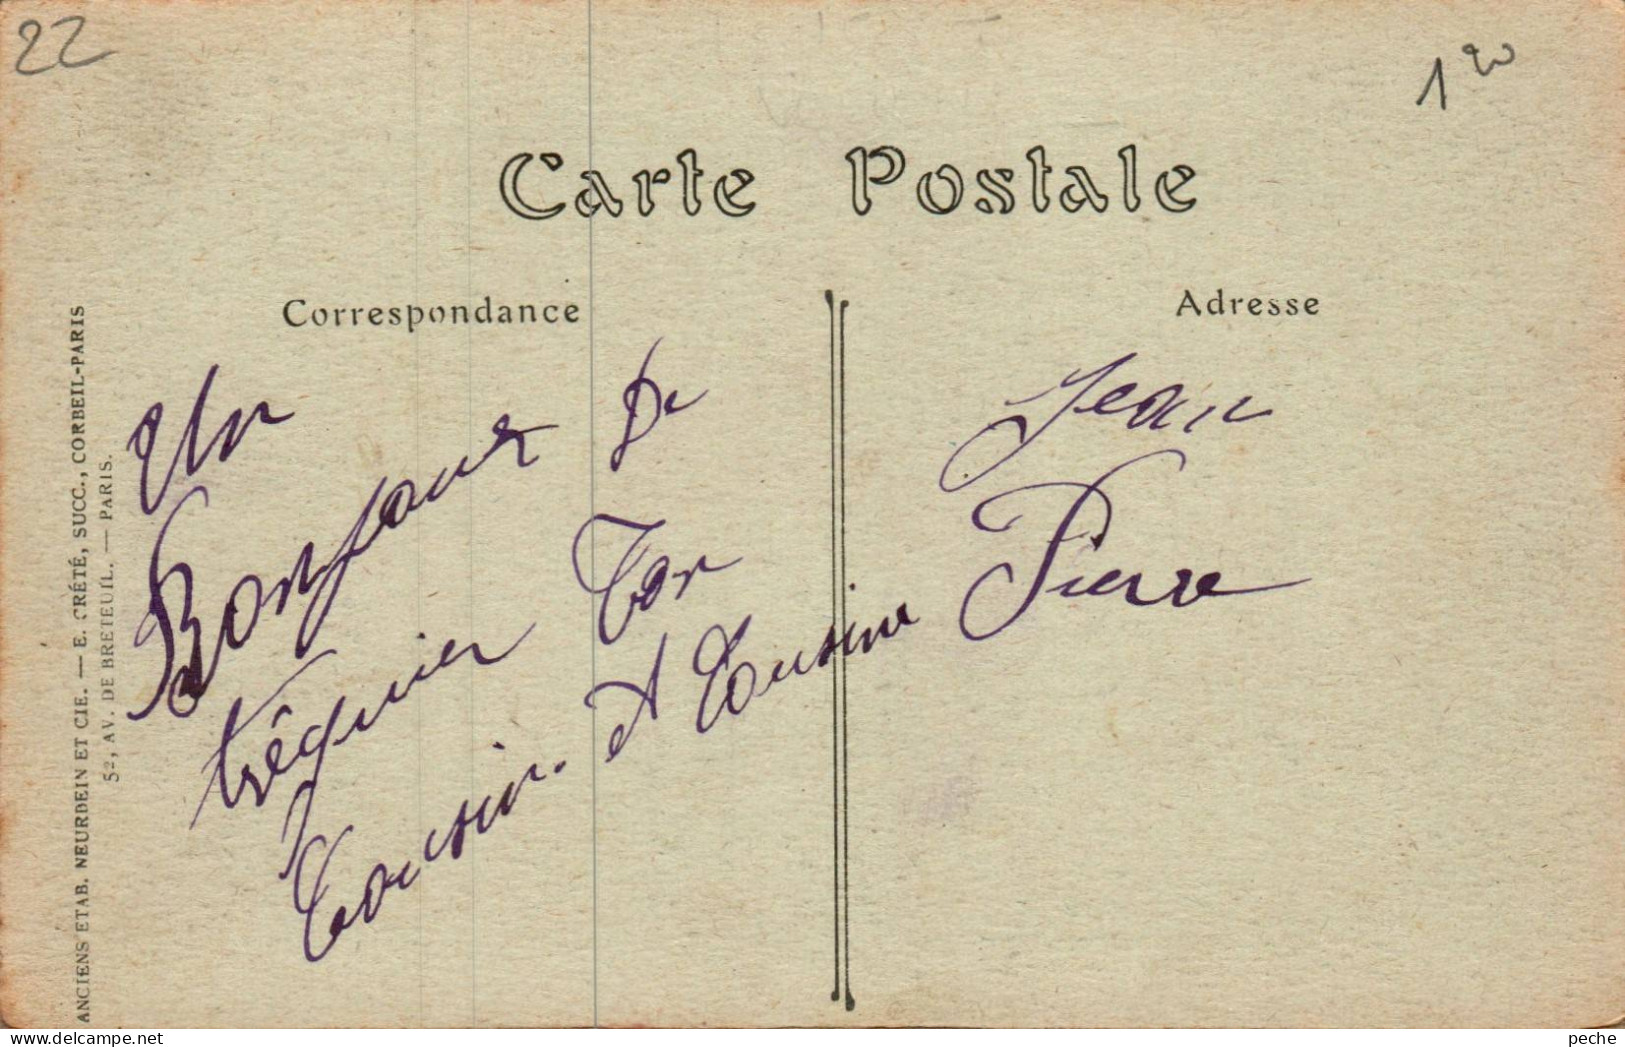 22
1 20
Carte Postale
Correspondance
Adresse
Un
Bonjour De
tréguier Ton
Cousin. et Cousine
Jean
Pierre
ANCIENS ETAB. NEURDEIN ET CIE. — E. CRÉTÉ, SUCC., CORBEIL-PARIS
52, AV. DE BRETEUIL. — PARIS.
peche